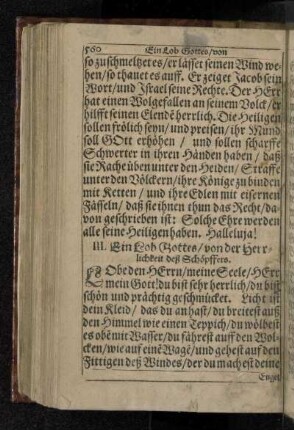 560 Ein Lob Gottes/von
so zuschmeltzet es/er lässet seinen Wind we-
hen/so thauet es auff. Er zeiget Jacob sein
Wort/und Israel seine Rechte. Der HErr
hat einen Wolgefallen an seinem Volck/er
hilfft seinen Elendē herrlich. Die Heiligen
sollen frölich seyn/und preisen/ihr Mund
soll GOtt erhöhen/ und sollen scharffe
Schwerter in ihren Händen haben/ daß
sie Rache üben unter den Heiden/ Straffe
unter den Völckern/ihre Könige zu binden
mit Ketten/ und ihre Edlen mit eisernen
Fässeln/ daß sie ihnen thun das Recht/da-
von geschrieben ist: Solche Ehre werden
alle seine Heiligen haben. Halleluja!
III. Ein Lob Gottes/von der Herr-
lichkeit deß Schöpffers.
LObe den HErrn/meine Seele/HErr
mein Gott! du bist sehr herrlich/du bist
schön und prächtig geschmücket. Licht ist
dein Kleid/ das du an hast/du breitest auß
den Himmel wie einen Teppich/du wölbest
es obē mit Wasser/du fährest auff den Wol-
cken/wie auf einē Wagē/und gehest auf den
Fittigen deß Windes/der du machest deine
Engel